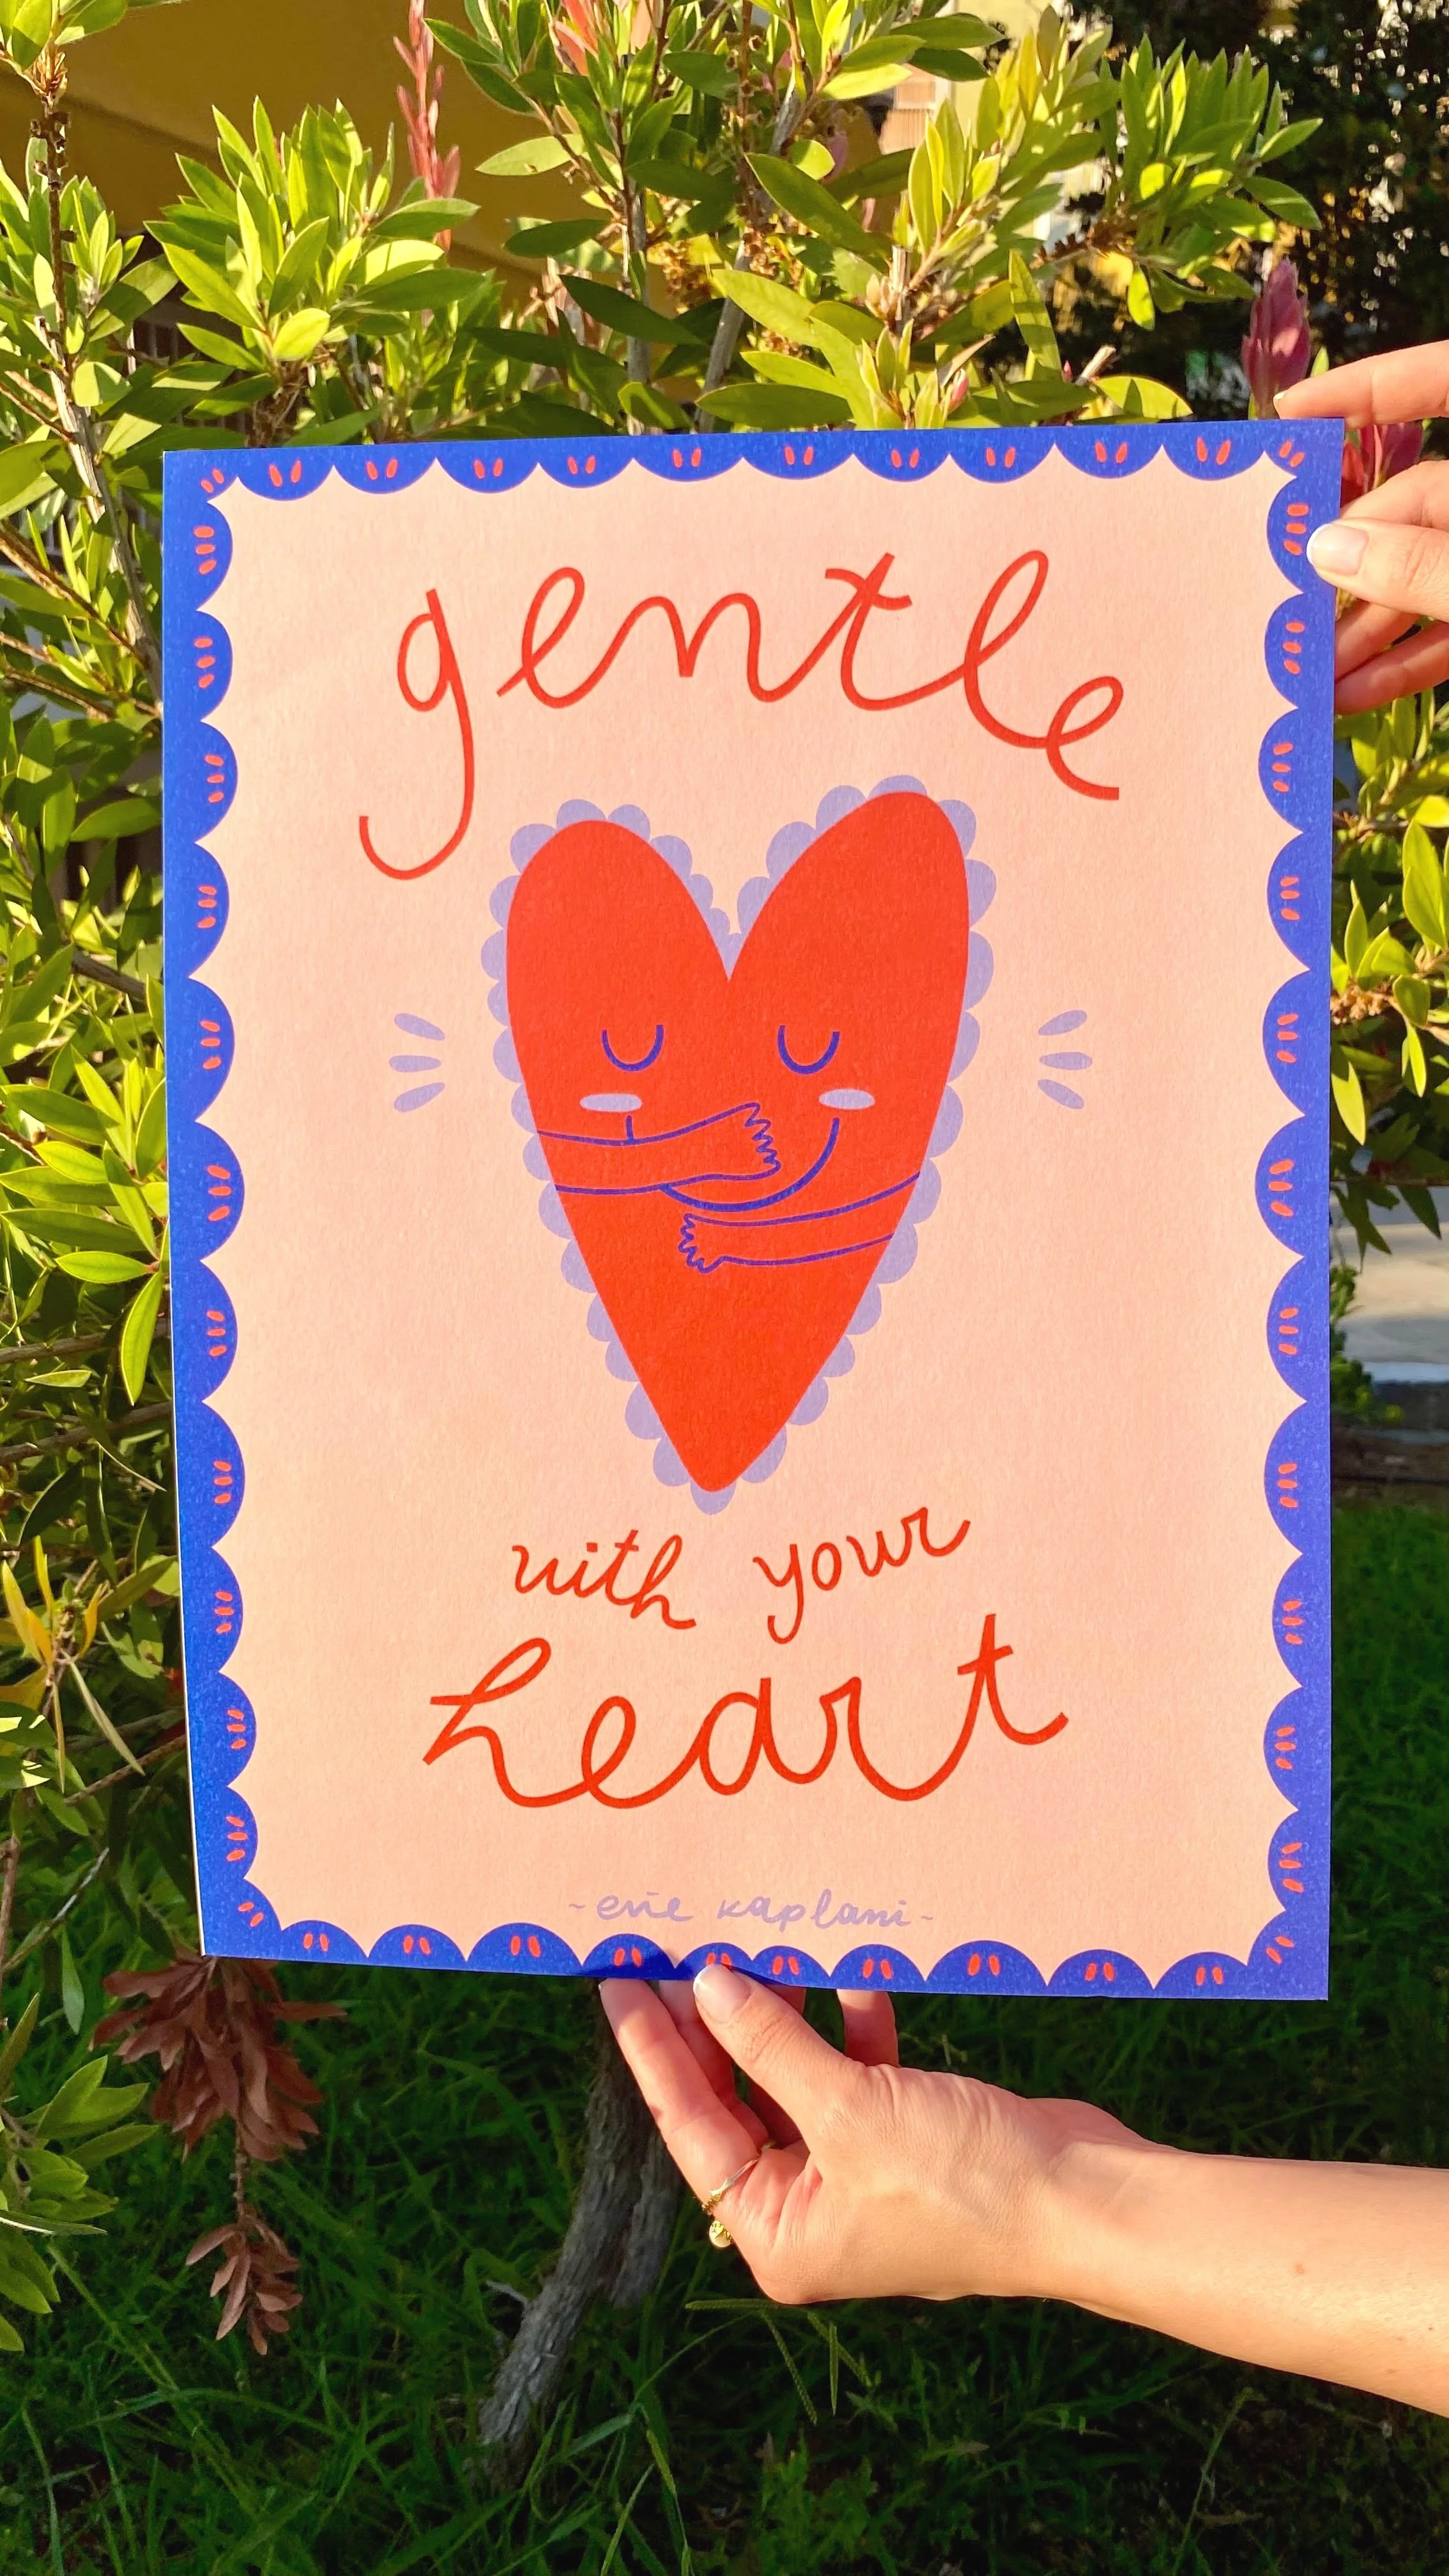 gentle
with your
heart
-evie kaplani-